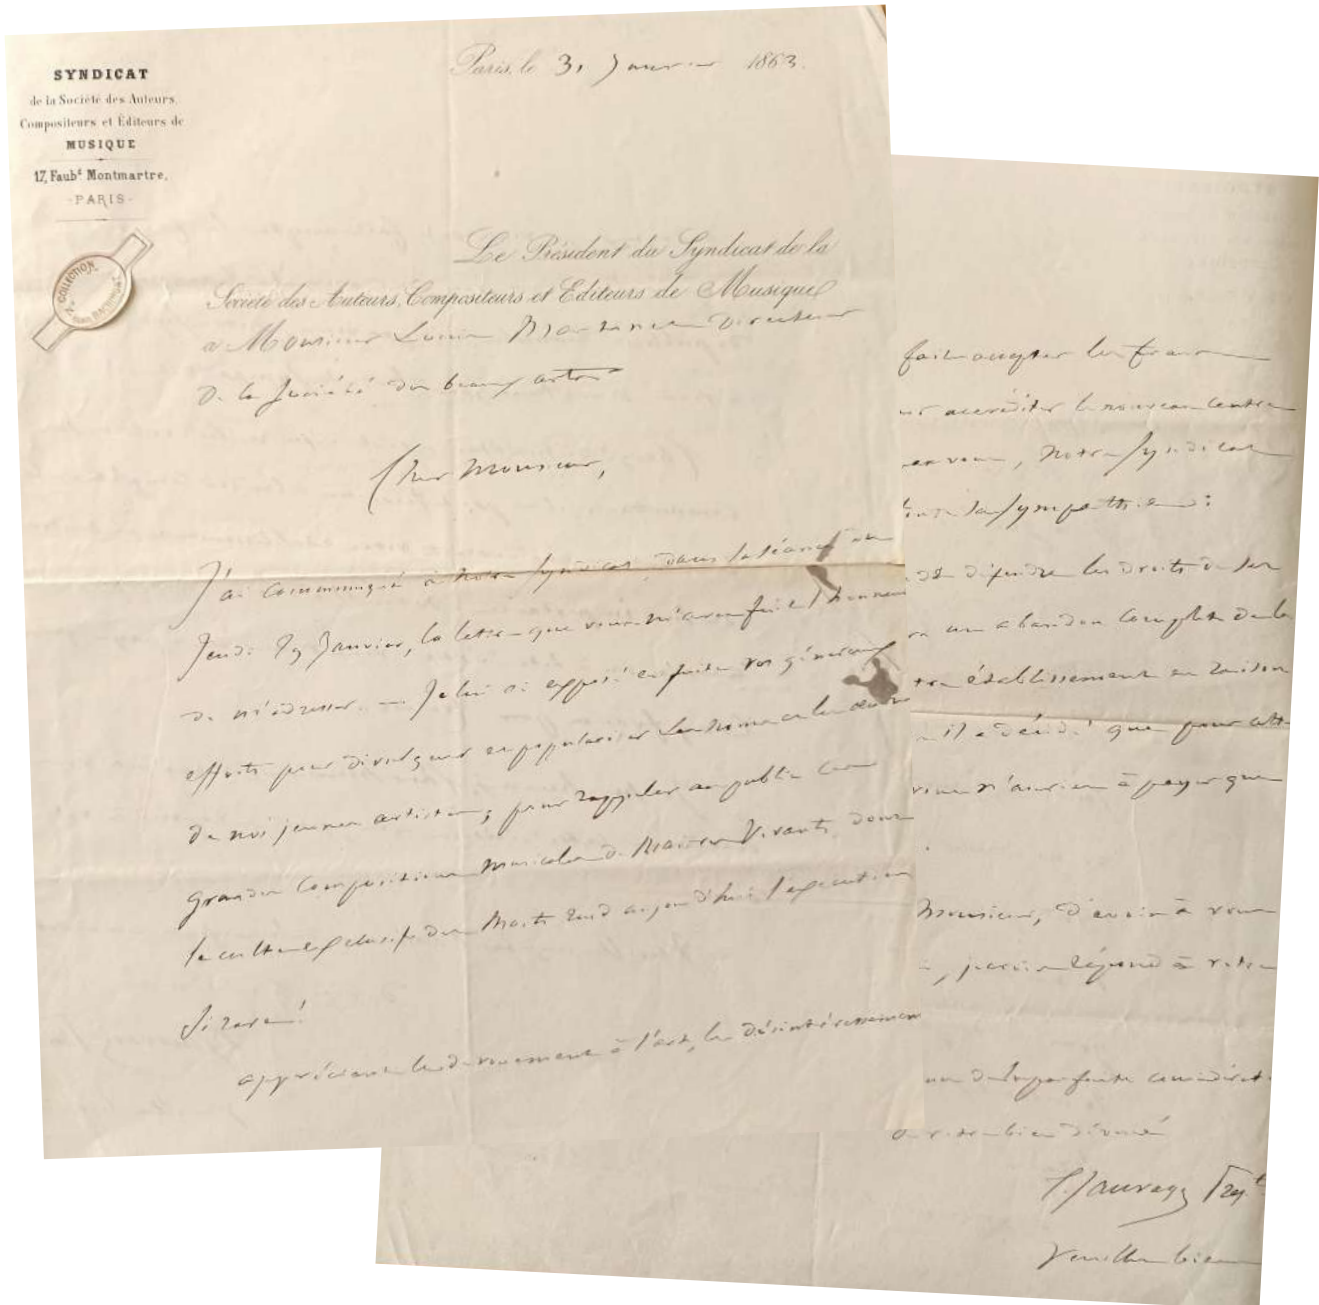 SYNDICAT
de la Société des Auteurs,
Compositeurs et Éditeurs de
MUSIQUE
17, Faubg Montmartre,
-PARIS-
COLLECTION
Paris, le 31 Janvier 1863.
Le Président du Syndicat de la
Société des Auteurs, Compositeurs et Editeurs de Musique
a Monsieur Martinet Directeur
De la Société des beaux arts
Cher Monsieur,
J'ai communiqué à notre Syndicat, dans la séance du
Jeudi 29 Janvier, la lettre que vous m'avez fait l'honneur
de m'adresser. — Je lui ai exposé ensuite vos généreux
efforts pour divulguer et populariser les noms et les œuvres
de nos jeunes artistes, pour rappeler au public ces
grandes Compositions musicales de Maitres Vivants dont
le culte exclusif des Morts rend aujourd'hui l'exécution
si rare!
appréciant le dévouement à l'art, le désintéressement
fait accepter les frais
accréditer le nouveau Centre
, notre Syndicat
sympathies:
de défendre les droits de ses
un abandon complet de la
établissement en raison
il a décidé que pour cette
vous n'auriez à payer que
Monsieur, d'avoir à vous
répond à votre
de la parfaite considérat.
de votre bien dévoué
T. Sauvage Prt.
Veuillez bien